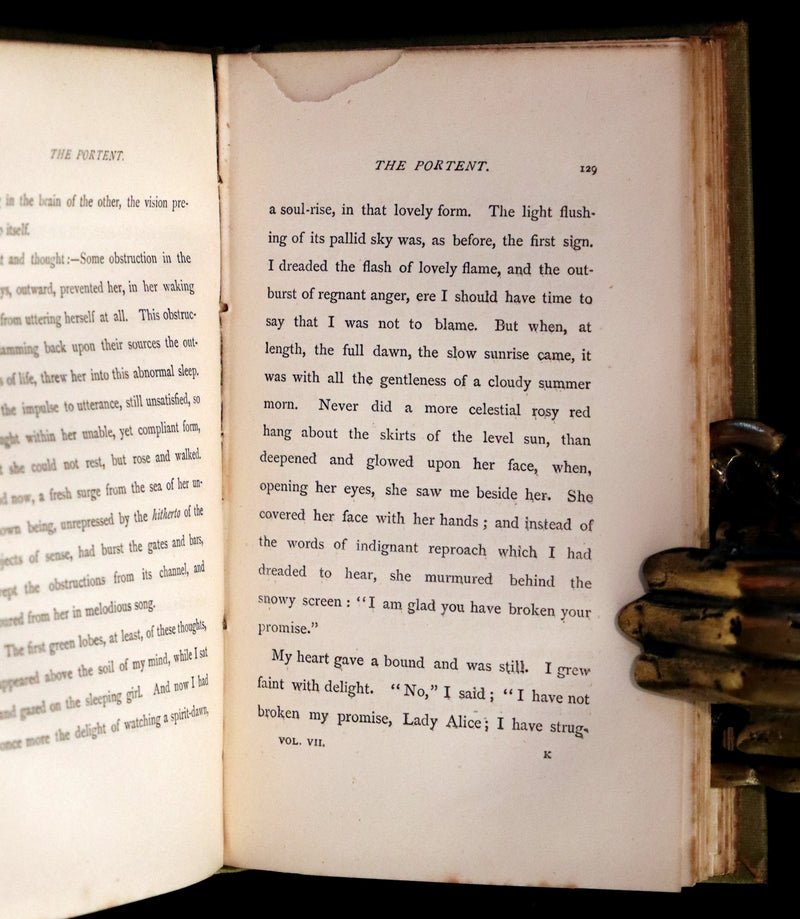 THE PORTENT.
in the brain of the other, the vision pre-
itself.
and thought:—Some obstruction in the
outward, prevented her, in her waking
from uttering herself at all. This obstruc-
back upon their sources the out-
of life, threw her into this abnormal sleep.
the impulse to utterance, still unsatisfied, so
within her unable, yet compliant form,
she could not rest, but rose and walked.
now, a fresh surge from the sea of her un-
own being, unrepressed by the hitherto of the
of sense, had burst the gates and bars,
the obstructions from its channel, and
from her in melodious song.
The first green lobes, at least, of these thoughts,
above the soil of my mind, while I sat
and gazed on the sleeping girl. And now I had
once more the delight of watching a spirit-dawn,
THE PORTENT. 129
a soul-rise, in that lovely form. The light flush-
ing of its pallid sky was, as before, the first sign.
I dreaded the flash of lovely flame, and the out-
burst of regnant anger, ere I should have time to
say that I was not to blame. But when, at
length, the full dawn, the slow sunrise came, it
was with all the gentleness of a cloudy summer
morn. Never did a more celestial rosy red
hang about the skirts of the level sun, than
deepened and glowed upon her face, when,
opening her eyes, she saw me beside her. She
covered her face with her hands; and instead of
the words of indignant reproach which I had
dreaded to hear, she murmured behind the
snowy screen: “I am glad you have broken your
promise.”
My heart gave a bound and was still. I grew
faint with delight. “No,” I said; “I have not
broken my promise, Lady Alice; I have strug-
VOL. VII.
K